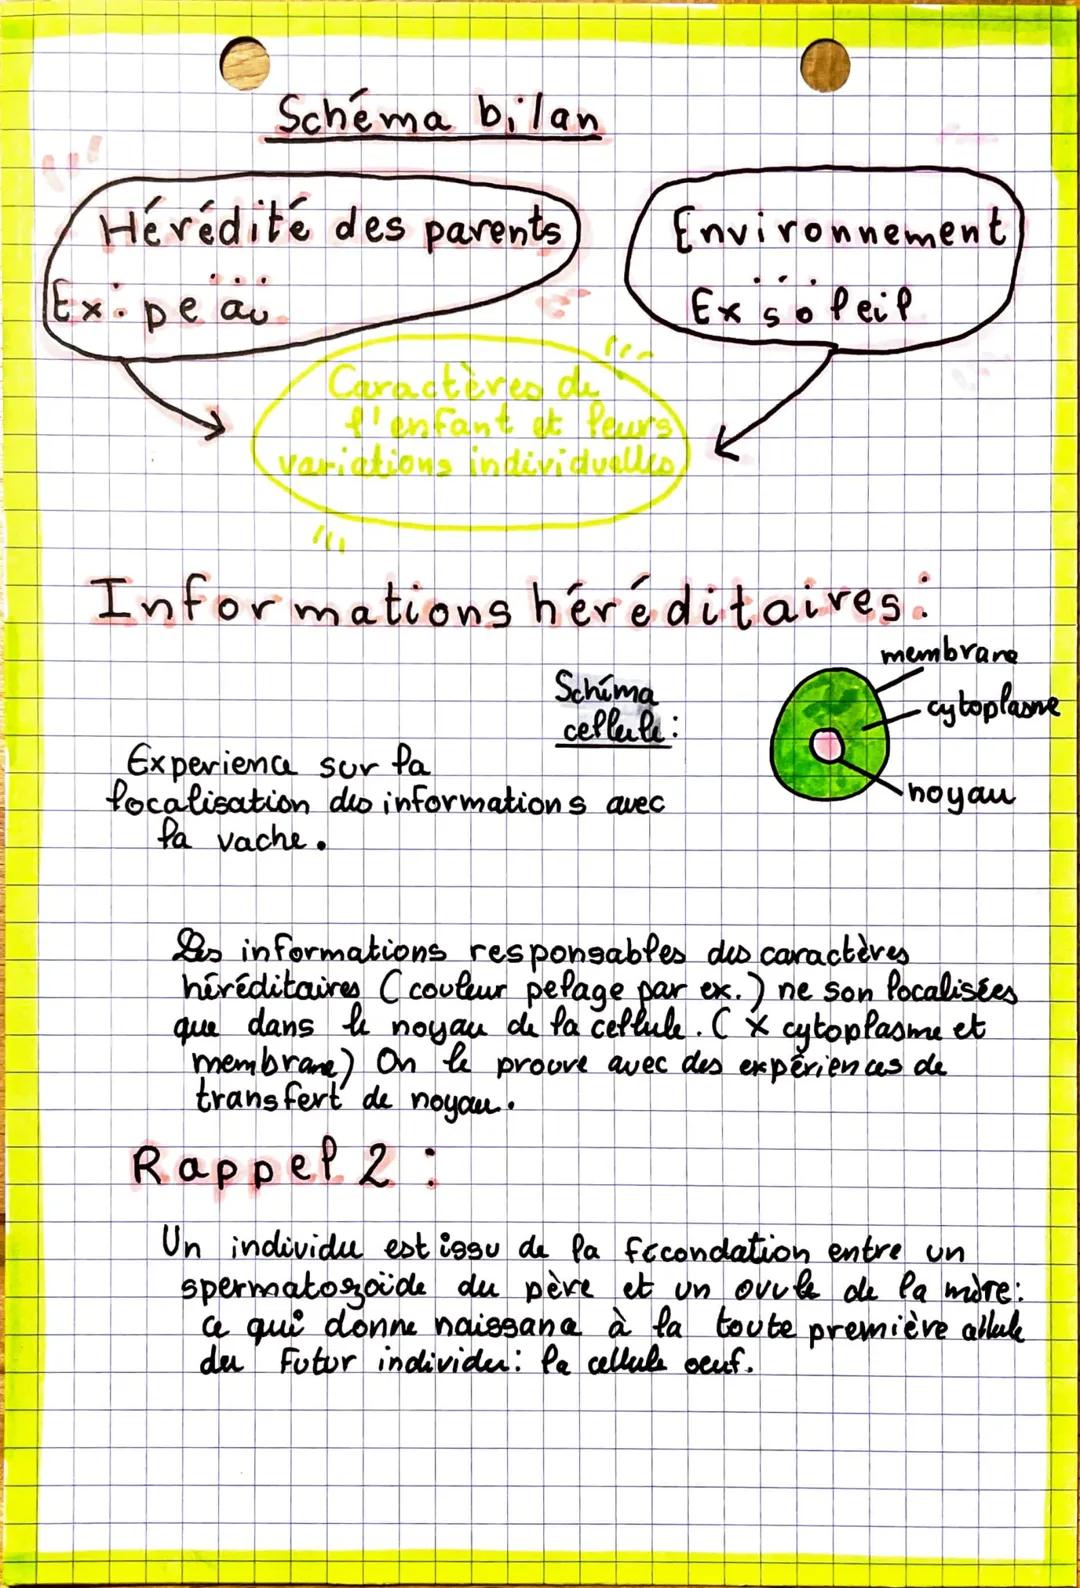 Schéma bilan
Hérédité des parents
Ex: peau
Environnement
Ex soleil
Caractères de
l'enfant et leurs
variations individuelles
Informations héréditaires:
Schéma
cellule:
membrane
cytoplasme
noyau
Experience sur la
localisation des informations avec
la vache.
Les informations responsables des caractères
héréditaires (couleur pelage par ex.) ne son localisées
que dans le noyau de la cellule. ( X cytoplasme et
membrane) On le prouve avec des expériences de
transfert de noyau.
Rappel 2 :
Un individu est issu de la fécondation entre un
spermatozoïde du père et un ovule de la mère:
ce qui donne naissance à la toute première cellule
du futur individu: la cellule oeuf.